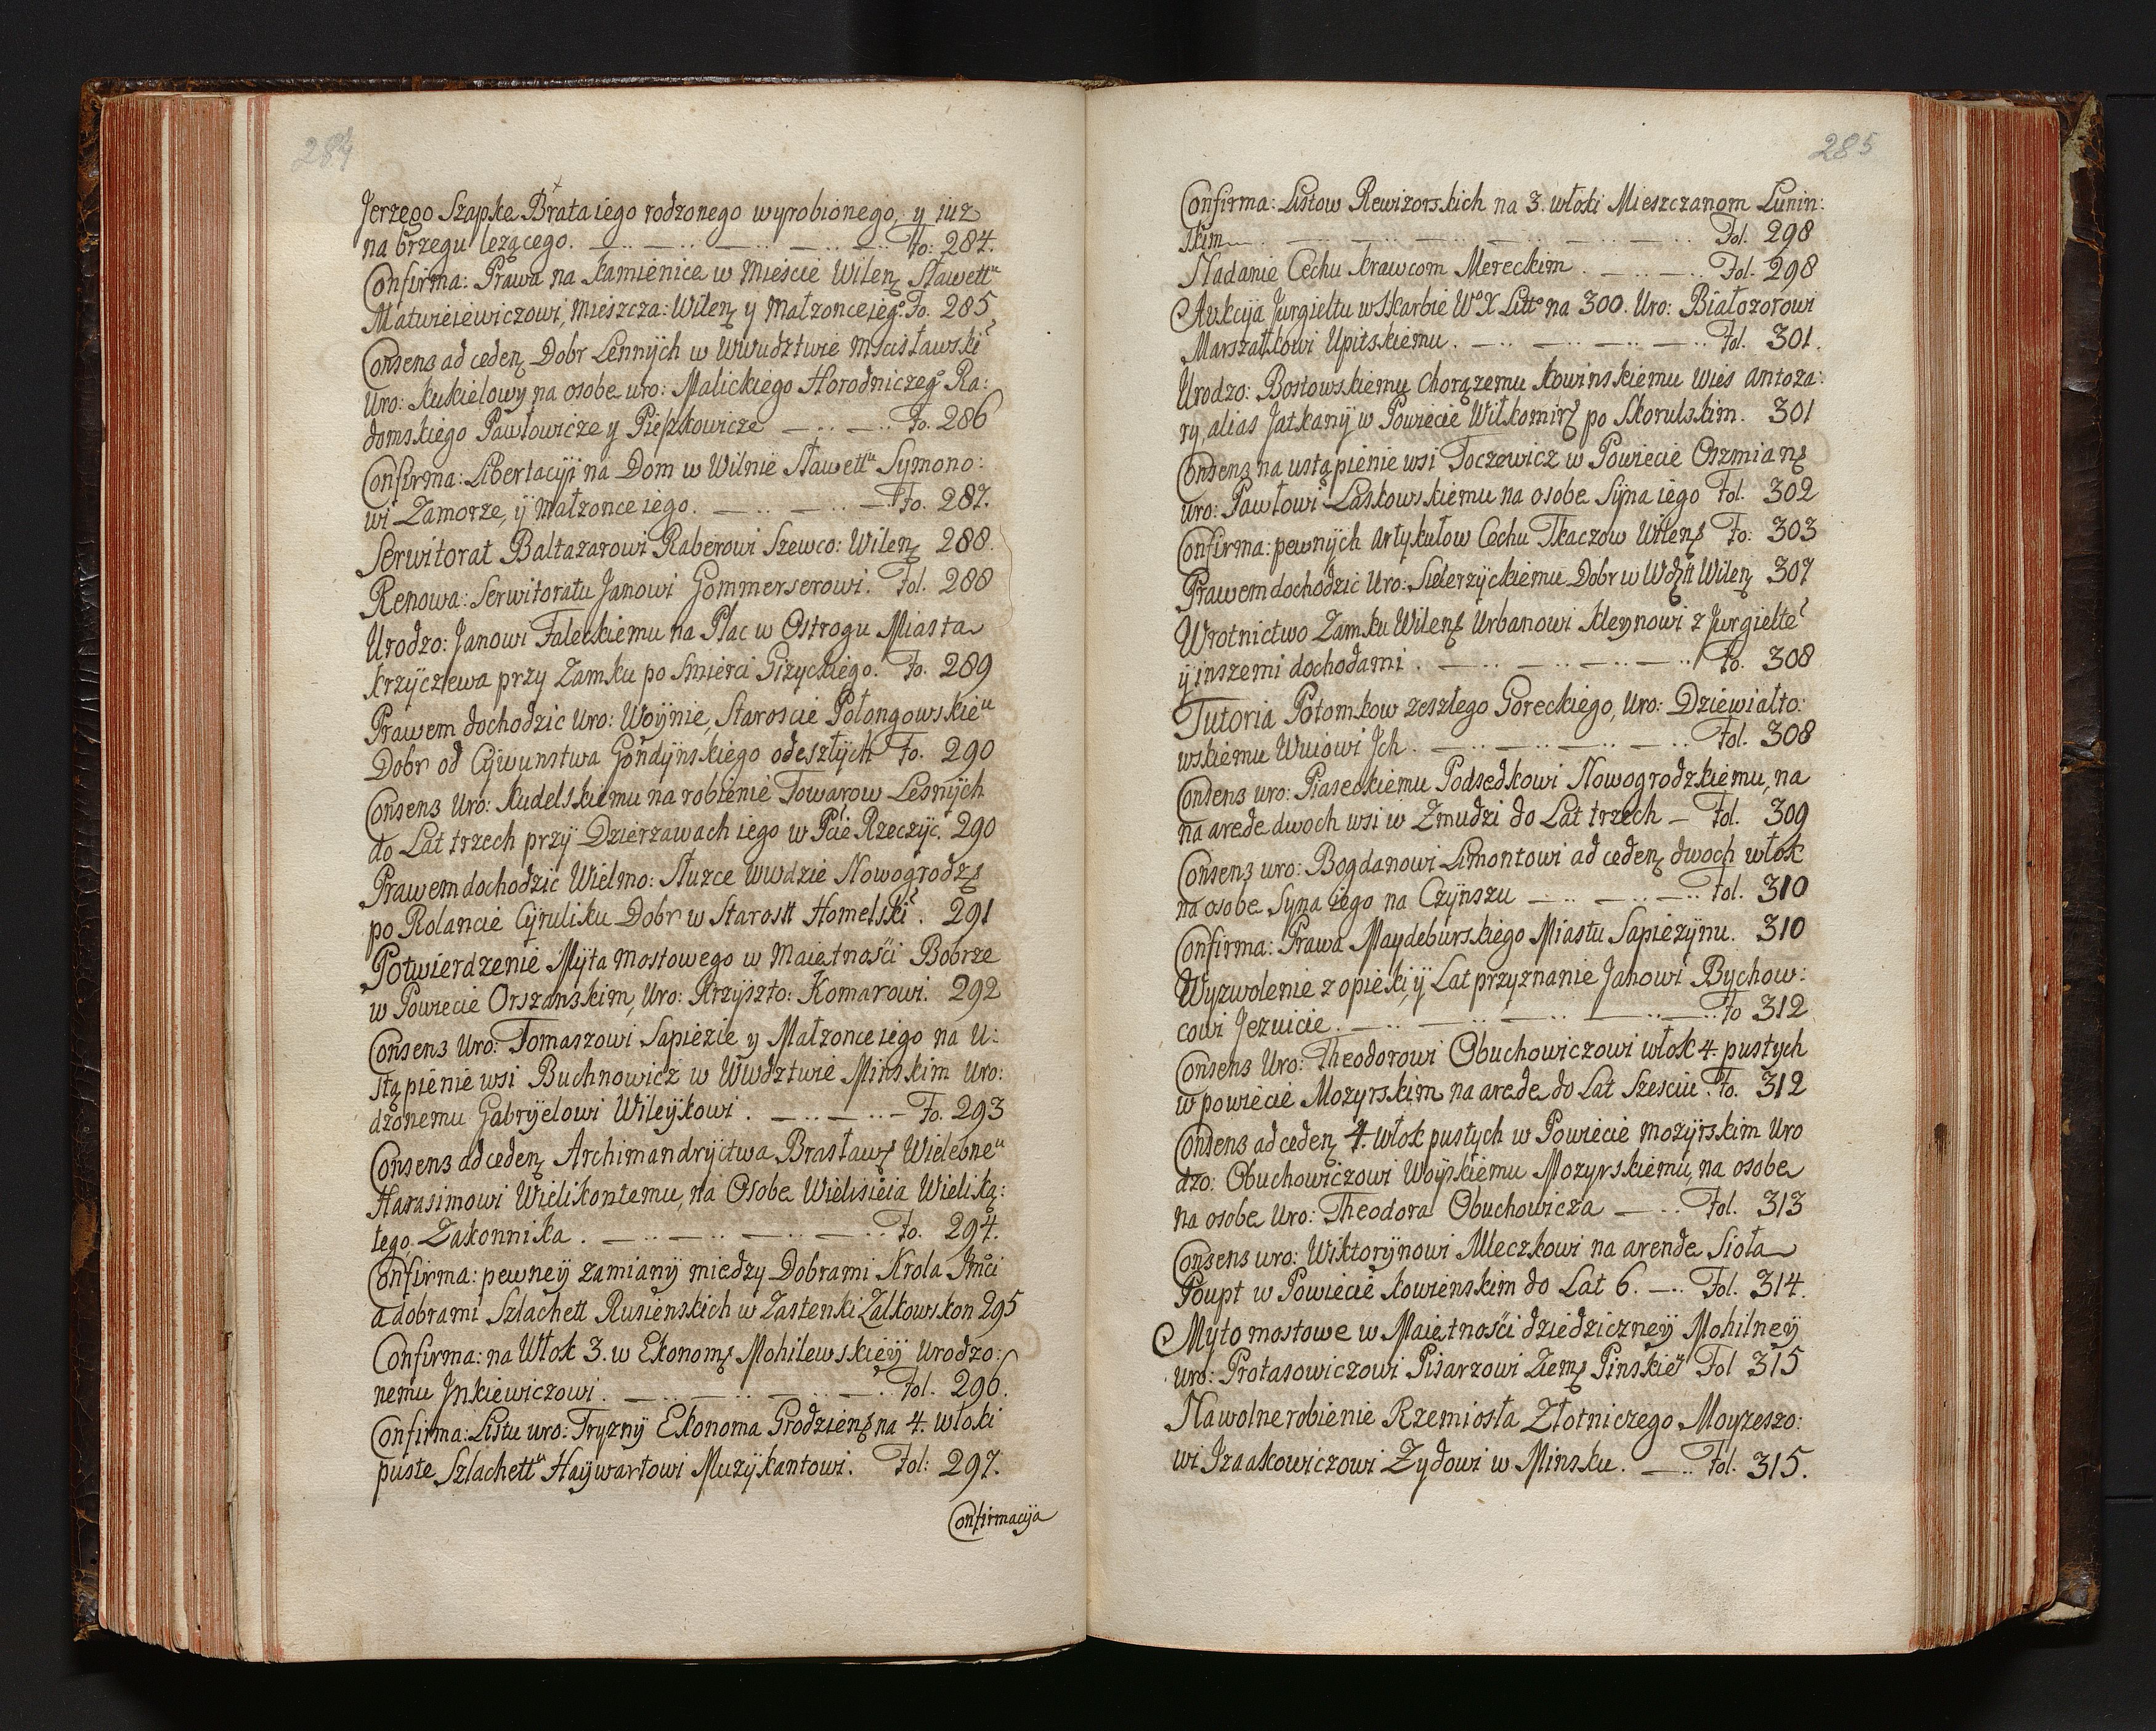 284
Jerzego Szapke Brata iego rodzonego wyrobionego, y iuz
na brzegu lezącego. Fo: 284.
Confirma: Prawa na Kamienice w Mieście Wilen Sławettu
Matwieiewiczowi, Mieszcza: Wilen y Małzonce iego. Fo. 285
Consens ad ceden Dobr Lennych w Wwudztwie Mscisławski
Uro: Kukielowy na osobe uro: Malickiego Horodniczego Ra:
domskiego Pawłowicze y Pieszkowicze Fo. 286
Confirma: Libertacyi na Dom w Wilnie Sławettu Symono:
wi Zamorze, y Małzonce iego. Fo. 287.
Serwitorat Baltazarowi Raberowi Szewco: Wilen 288.
Renowa: Serwitoratu Janowi Gommerserowi. Fol. 288
Urodzo: Janowi Faleckiemu na Plac w Ostrogu Miasta
Krzyczewa przy Zamku po Smierci Gizyckiego. Fo. 289
Prawem dochodzic Uro: Woynie, Staroscie Połongowskieu
Dobr od Cywunstwa Gondynskiego odeszłych Fo. 290
Consens Uro: Kudelskiemu na robienie Towarow Lesnych
do Lat trzech przy Dzierzawach iego w Pcie Rzeczyc. 290
Prawem dochodzic Wielmo: Słuzce Wwdzie Nowogrodz
po Rolancie Cyruliku Dobr w Starostt Homelski. 291
Potwierdzenie Myta mostowego w Maietności Bobrze
w Powiecie Orszanskim, Uro: Krzyszto: Komarowi. 292
Consens Uro: Tomaszowi Sapiezie y Małzonce iego na U:
stąpienie wsi Buchnowicz w Wwdztwie Minskim Uro:
dzonemu Gabryelowi Wileykowi. Fo. 293
Consens ad ceden Archimandryctwa Brasławs Wielebneu
Harasimowi Wielikontemu, na Osobe Wielisieia Wieliką:
tego Zakonnika. Fo. 294.
Confirma: pewney zamiany miedzy Dobrami Krola Jmci
a dobrami Szlachett Rusienskich w Zastenki Zalkowskon 295
Confirma: na Włok 3. w Ekonoms Mohilewskiey Urodzo:
nemu Jnkiewiczowi. Fol. 296.
Confirma: Listu uro: Tryzny Ekonoma Grodziens na 4. włoki
puste Szlachettu Haywartowi Muzykantowi. Fol: 297.
Confirmacyja
285
Confirma: Listow Rewizorskich na 3. włoki Mieszczanom Lunin:
skim Fol. 298
Nadanie Cechu krawcom Mereckim. Fol. 298
Aukcyja Jurgieltu w Skarbie Wo X Litto na 300. Uro: Białozorowi
Marszałkowi Upitskiemu. Fol. 301.
Urodzo: Bostowskiemu Chorązemu Kowinskiemu Wies Antoza:
ry, alias Jatkany w Powiecie Wiłkomirs po Skorulskim. 301
Consens na ustąpienie wsi Toczewicz w Powiecie Oszmians
uro: Pawłowi Laskowskiemu na osobe Syna iego Fol. 302
Confirma: pewnych Artykułow Cechu Tkaczow Wilens Fo: 303
Prawem dochodzic Uro: Sielerzyckiemu Dobr w Wdztt Wilen 307
Wrotnictwo Zamku Wilens Urbanowi Kleynowi z Jurgielte
y inszemi dochodami. Fo. 308
Tutoria Potomkow zeszłego Goreckiego, Uro: Dziewiałto:
wskiemu Wuiowi Jch. Fol. 308
Consens uro: Piaseckiemu Podsedkowi Nowogrodzkiemu, na
na arede dwoch wsi w Zmudzi do Lat trzech Fol. 309
Consens uro: Bogdanowi Limontowi ad ceden dwoch włok
na osobe Syna iego na Czynszu Fol. 310
Confirma: Prawa Maydeburskiego Miastu Sapiezynu. 310
Wyzwolenie z opieki, y Lat przyznanie Janowi Bychow:
cowi Jezuicie. Fo 312
Consens Uro: Theodorowi Obuchowiczowi włok 4. pustych
w powiecie Mozyrskim na arede do Lat Szesciu. Fo. 312
Consens ad ceden 4. włok pustych w Powiecie mozyrskim Uro
dzo: Obuchowiczowi Woyskiemu Mozyrskiemu, na osobe
na osobe Uro: Theodora Obuchowicza Fol. 313
Consens uro: Wiktorynowi Mleczkowi na arende Sioła
Poupt w Powiecie kowienskim do Lat 6. Fol. 314.
Myto mostowe w Maietności dziedziczney Mohilney
uro: Protasowiczowi Pisarzowi Ziems Pinskieu Fol 315
Na wolne robienie Rzemiosła Złotniczego Moyzeszo:
wi Izaakowiczowi Zydowi w Minsku. Fol. 315.